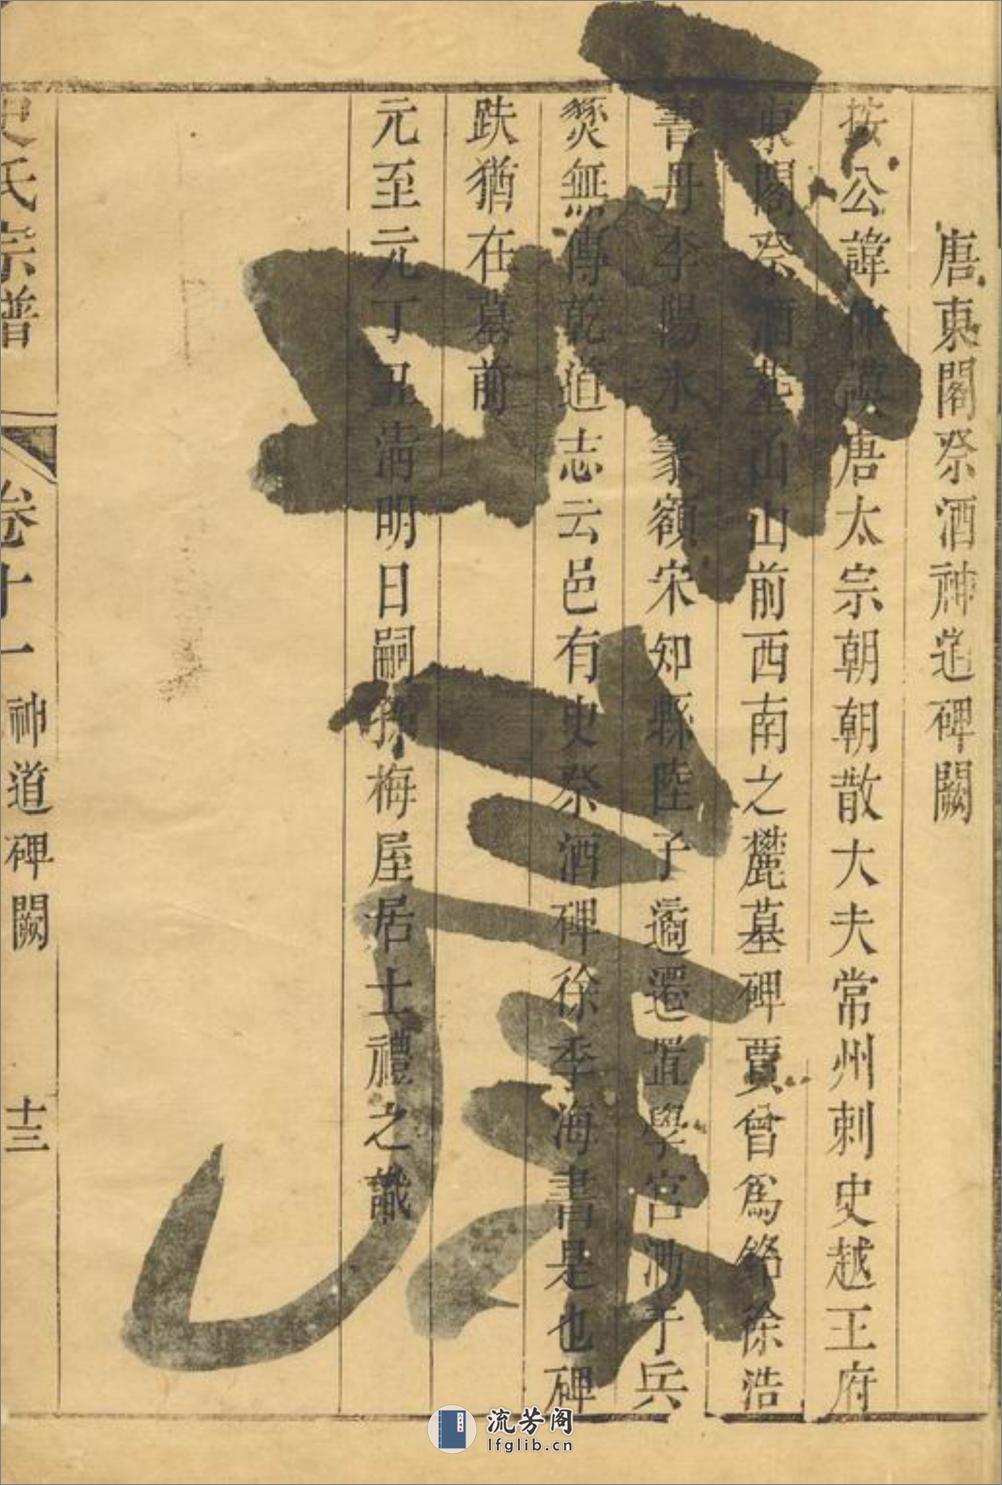 唐東閣祭酒神道碑闕
按公諱 唐太宗朝朝散大夫常州刺史越王府
東閣祭酒墓在山前西南之麓墓碑賈曾爲銘徐浩
書丹李陽氷篆額宋知縣陸子遹遷置學宮沩于兵
燹無傳乾道志云邑有史祭酒碑徐季海書是也碑
趺猶在墓前
元至元丁丑清明日嗣孫梅屋居士禮之識
史氏宗譜
卷十一
神道碑闕
十三
流芳阁
lfglib.cn